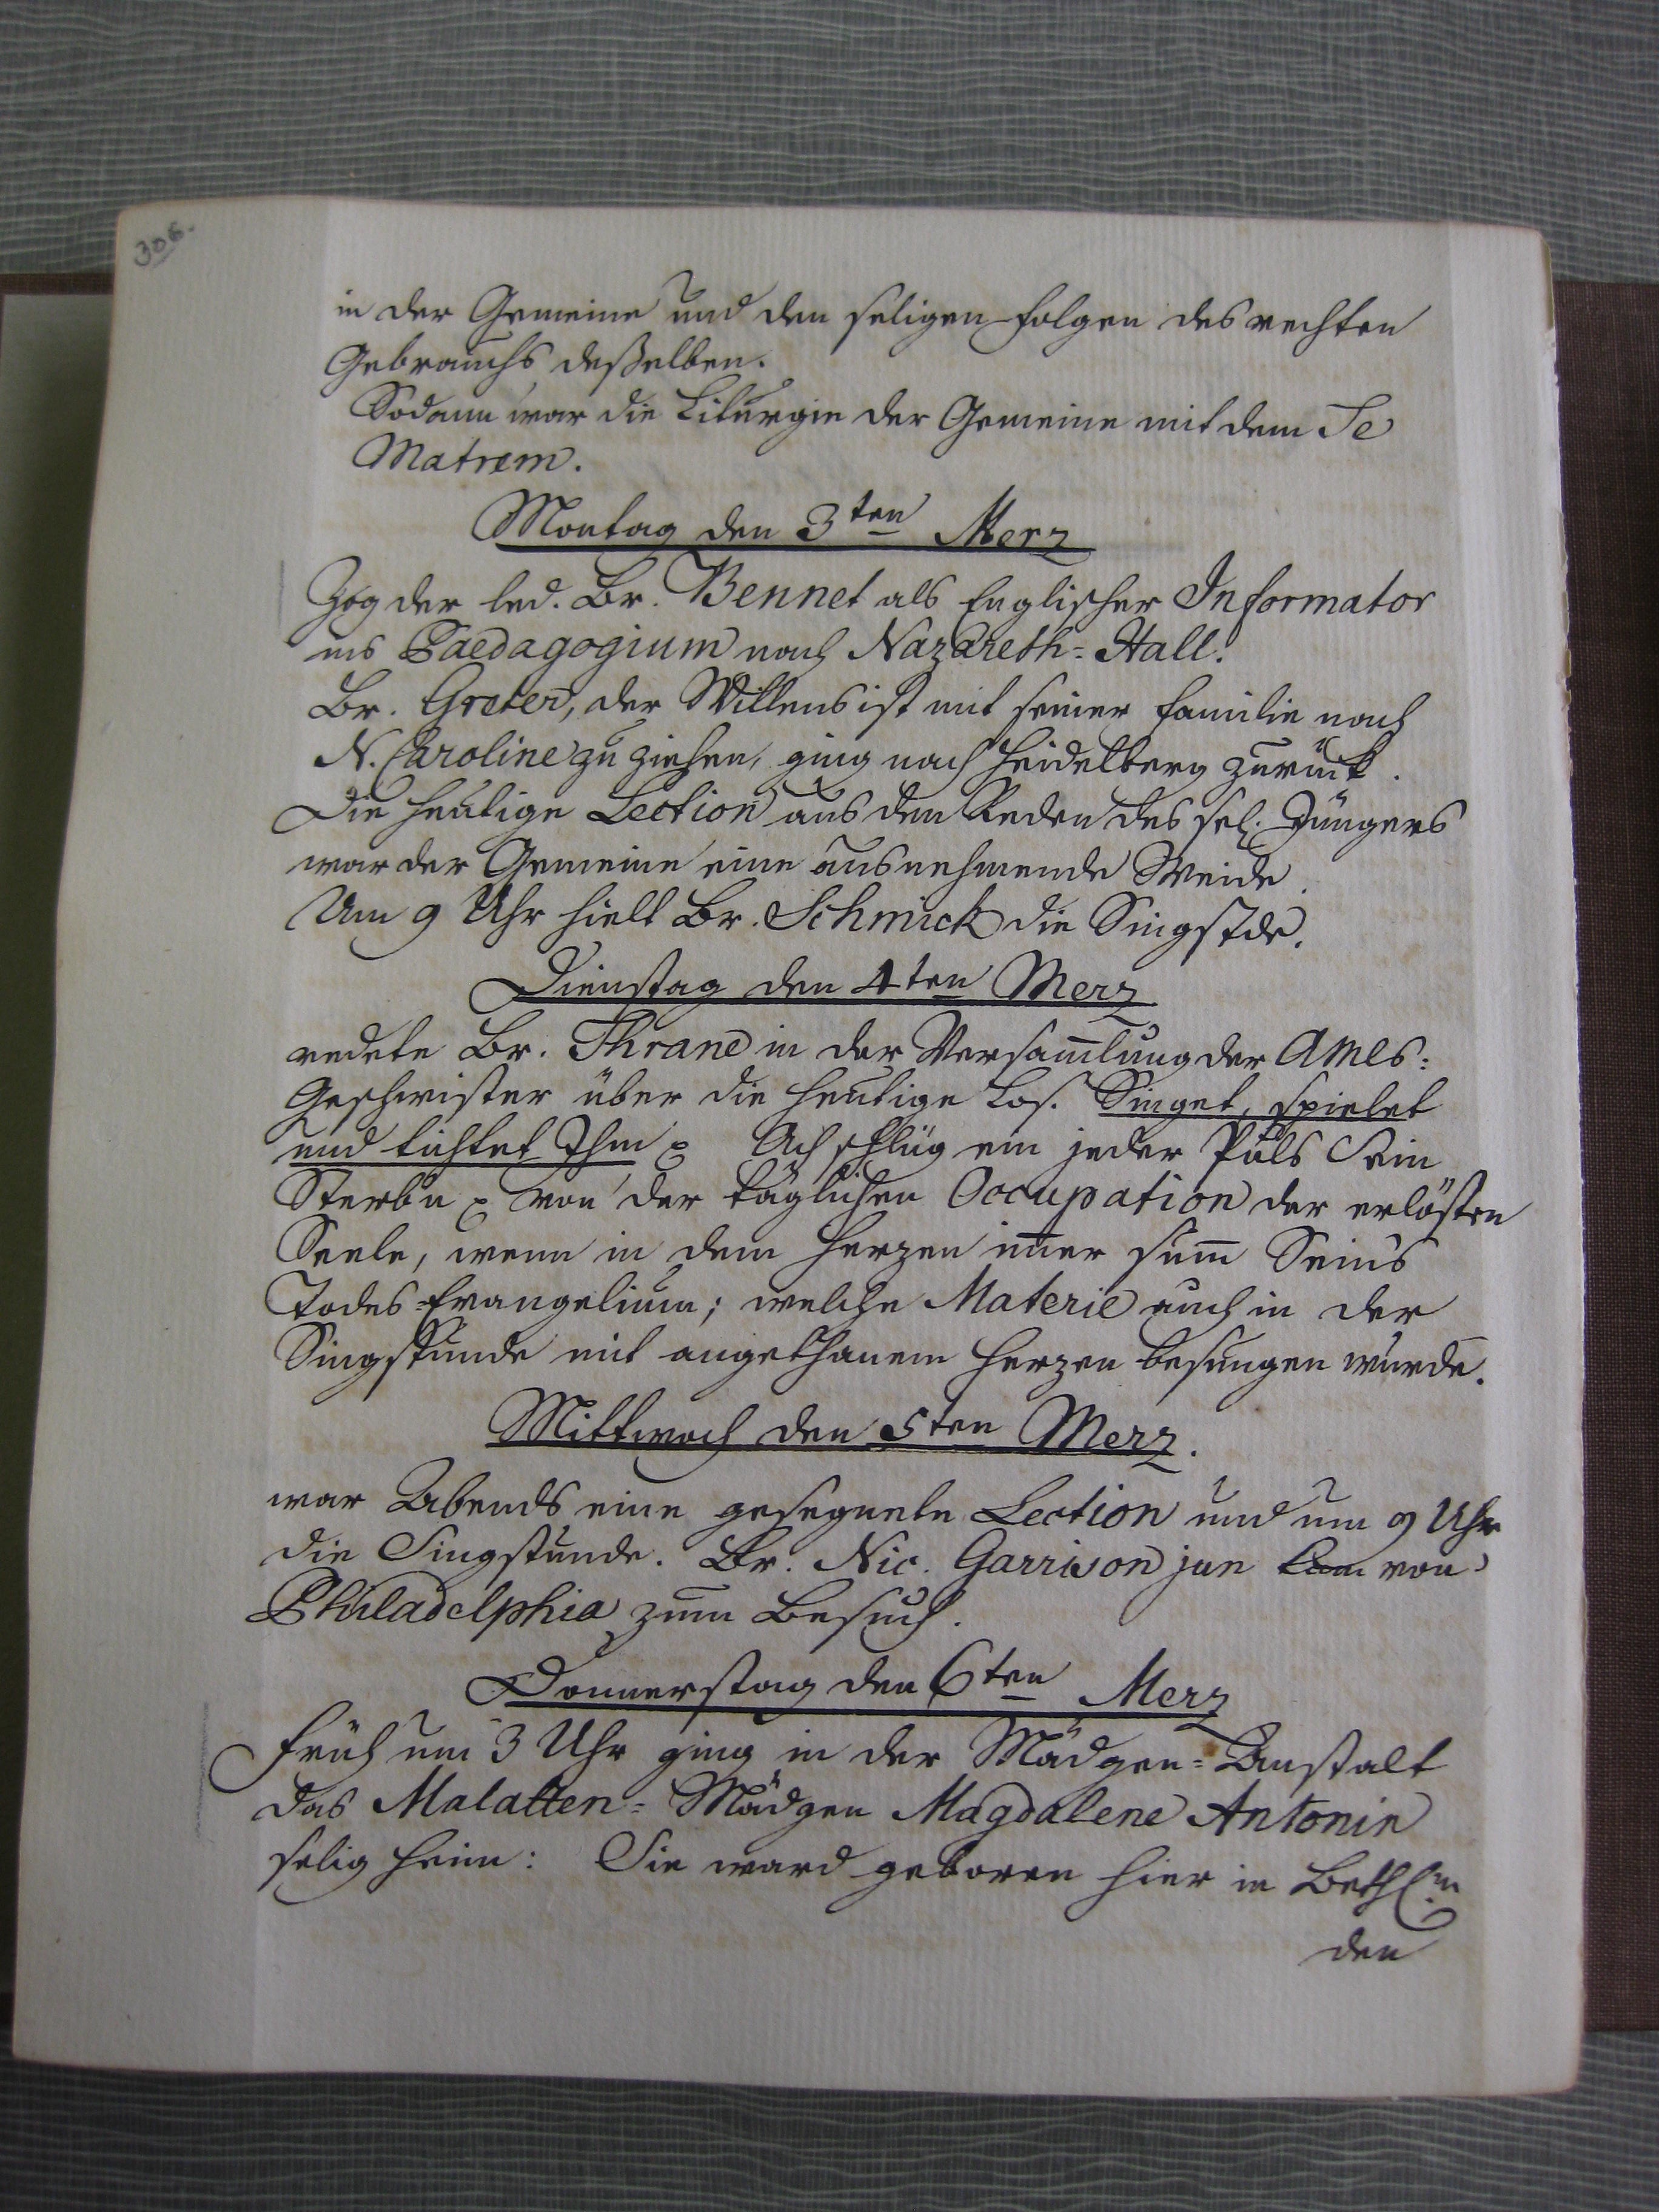 306.
in der Gemeine und den seligen Folgen des rechten
Gebrauchs deßelben.
Sodann war die Liturgie der Gemeine mit dem Te
Matrem.
Montag den 3ten Merz
Zog der led. Br. Bennet als Englischer Informator
ins Paedagogium nach Nazareth=Hall.
Br. Greter, der Willens ist mit seiner Familie nach
N. Caroline zu ziehen, ging nach Heidelberg zurück.
Die heutige Lection aus den Reden des sel. Jüngers
war der Gemeine eine ausnehmende Weide.
Um 9 Uhr hielt Br. Schmick die Singstde.
Dienstag den 4ten Merz
redete Br. Thrane in der Versam̅lung der Amts=
Geschwister über die heutige Los. Singet, spielet
und tichtet Ihm ꝛc Ach schlüg ein jeder Puls Sein
Sterbn ꝛc von der täglichen Occupation der erlösten
Seele, wenn in dem Herzen im̅er sum̅ Seins
Todes=Evangelium; welche Materie auch in der
Singstunde mit angethanem Herzen besungen wurde.
Mittwoch den 5ten Merz.
war Abends eine gesegnete Lection und um 9 Uhr
die Singstunde. Br. Nic. Garrison jun kam von
Philadelphia zum Besuch.
Donnerstag den 6ten Merz
Früh um 3 Uhr ging in der Mädgen=Anstalt
das Malatten=Mädgen Magdalene Antonin
selig heim: Sie ward geboren hier in Bethlm
den